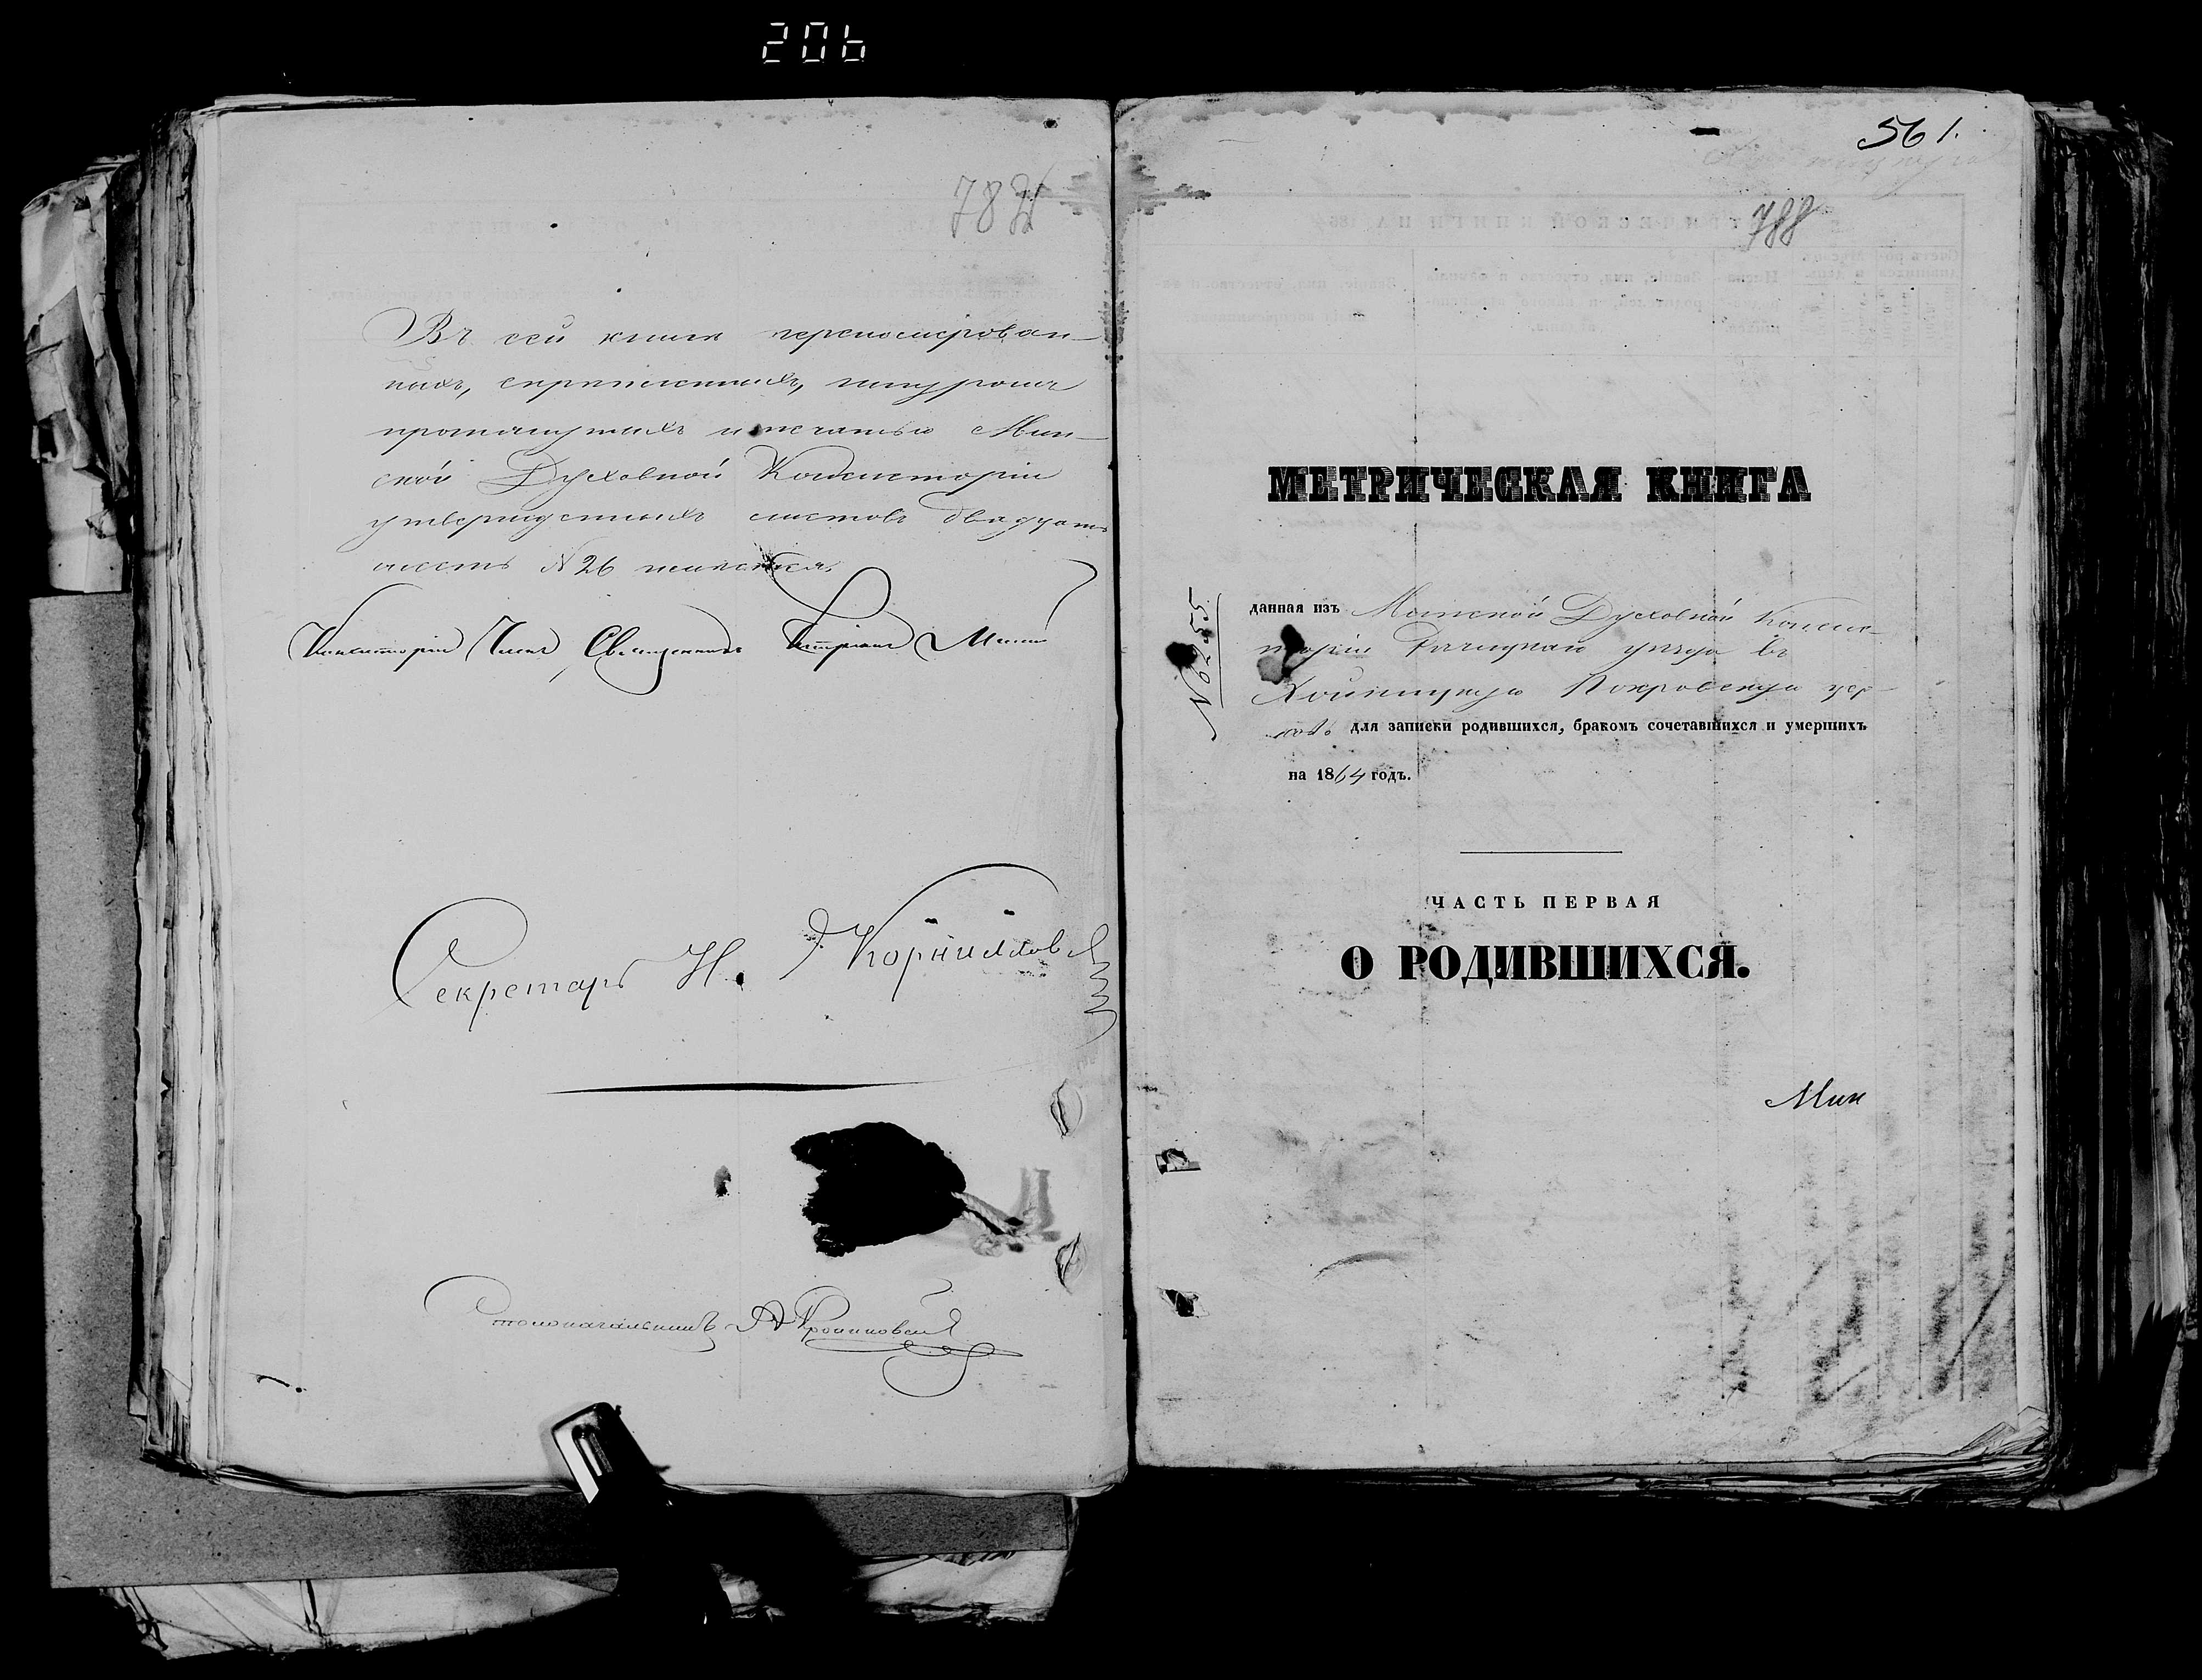 206
782
Въ сей книгѣ перенумерован-
ныхъ, скрѣпленныхъ, шнуромъ
протянутыхъ и печатью Мин-
ской Духовной Консисторіи
утвержденныхъ листовъ двадцать
шесть N 26
Консисторіи Членъ Священникъ
Секретарь Н. Корниловъ
Столоначальникъ А
561.
788
МЕТРИЧЕСКАЯ КНИГА
N 6255
данная изъ Минской Духовной Консис-
торіи Рѣчицкаго уѣзда въ
Хойникскую Покровскую цер-
ковь для записки родившихся, бракомъ сочетавшихся и умершихъ
на 1864 годъ.
ЧАСТЬ ПЕРВАЯ
О РОДИВШИХСЯ.
Мин